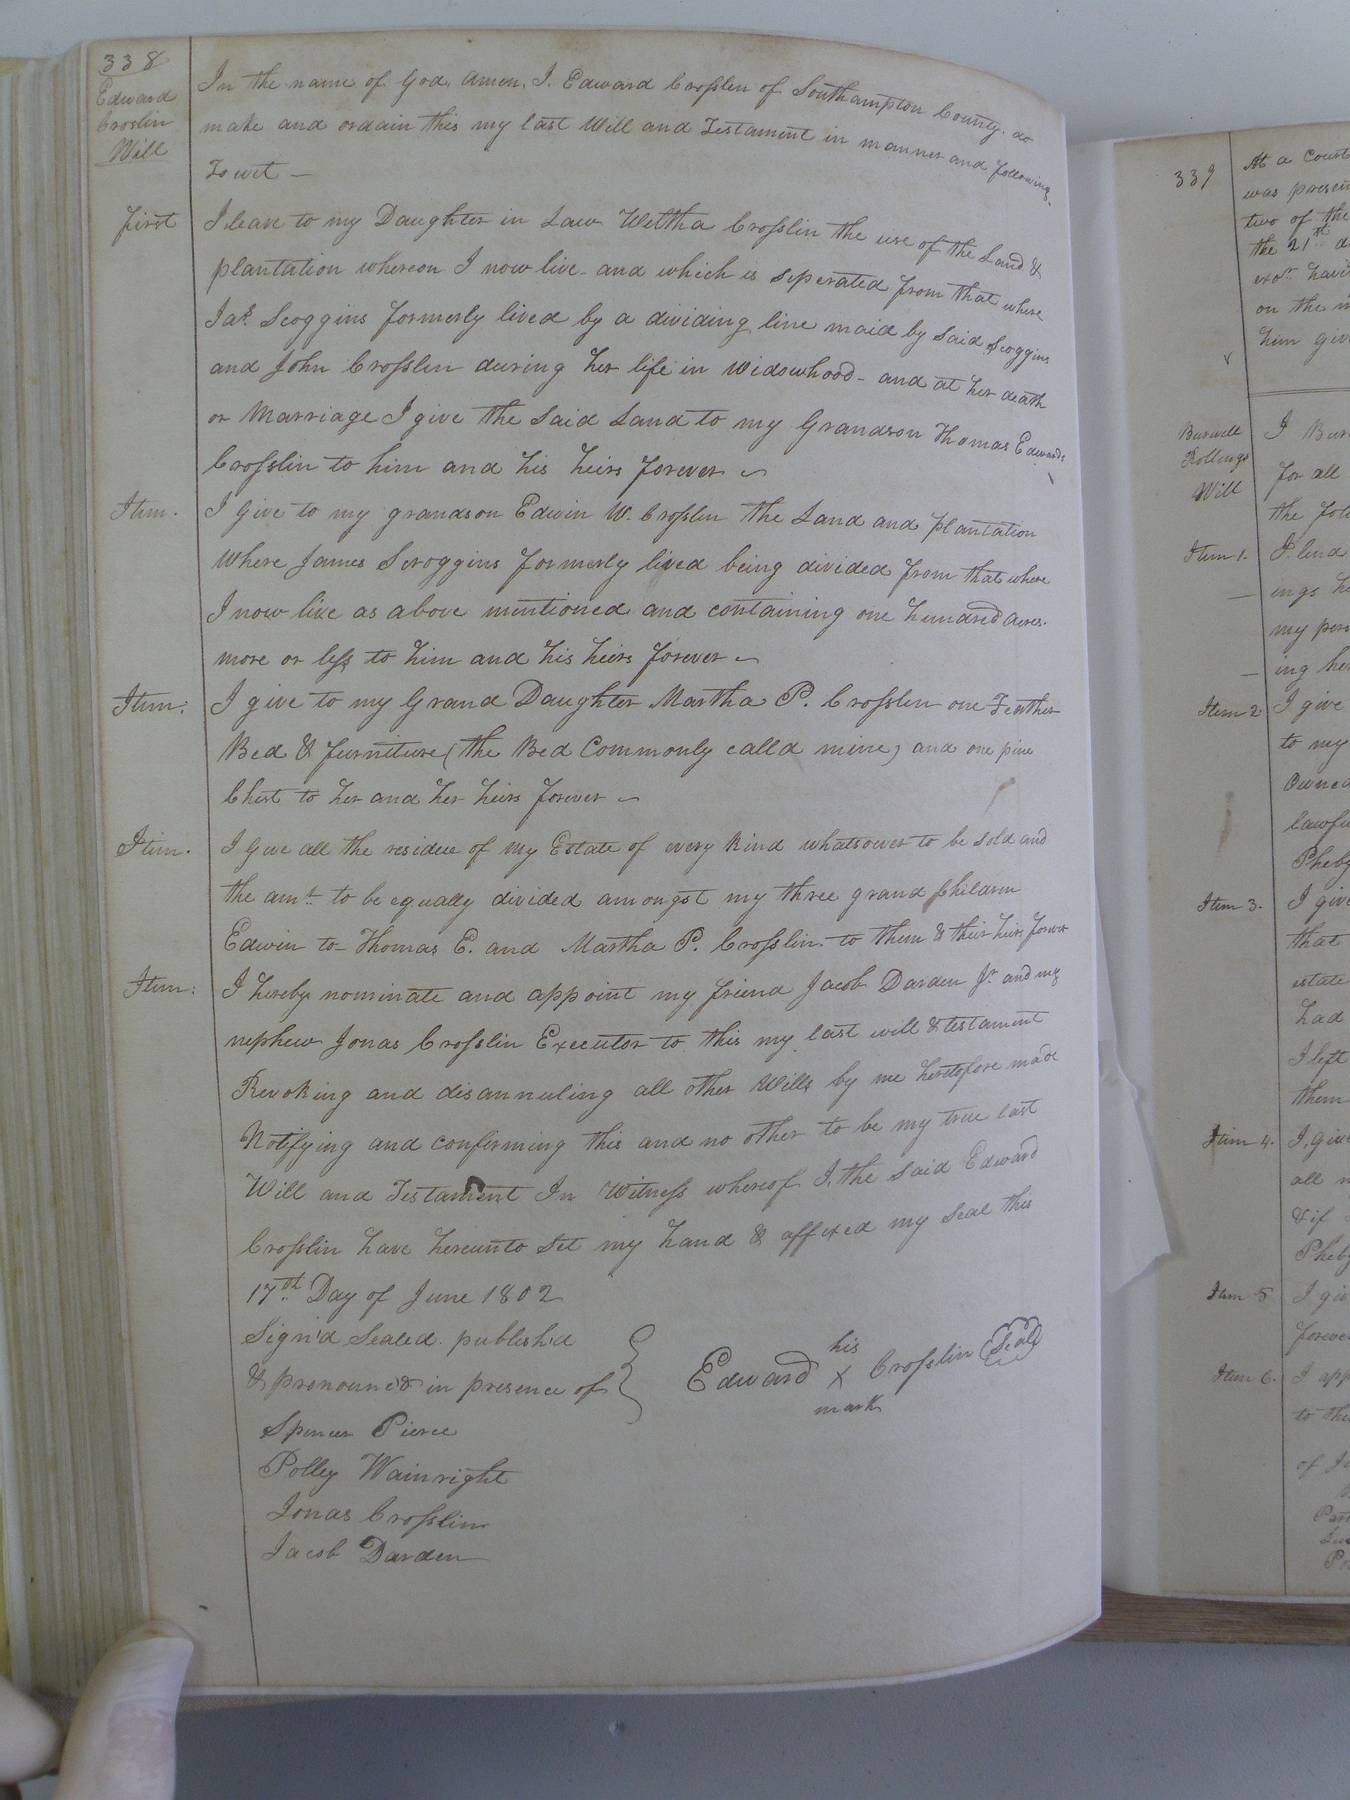 338
Edward
Croslin
Will
In the name of God, Amen. I. Edward Crosslin of Southampton County. do
make and ordain this my last Will and Testament in manner and following.
To wit —
first I leave to my Daughter in Law Weltha Crosslin the use of the Land &
plantation whereon I now live - and which is seperated from that where
Jas. Scoggins formerly lived by a dividing line maid by said Scoggins
and John Crosslin during her life in Widowhood - and at her death
or Marriage I give the said Land to my Grandson Thomas Edwards
Crosslin to him and his heirs forever ~
Item. I give to my grandson Edwin W. Crosslin the Land and plantation
Where James Scroggins formerly lived being divided from that where
I now live as above mentioned and containing one hundred acres.
more or less to him and his heirs forever ~
Item: I give to my Grand Daughter Martha P. Crosslin one Feather
Bed & furniture (the Bed Commonly calld mine) and one pine
Chest to her and her heirs forever ~
Item. I give all the residue of my Estate of every kind whatsoever to be sold and
the amt. to be equally divided amongst my three grand Children
Edwin to Thomas E. and Martha P. Crosslin. to them & their heirs forever
Item: I hereby nominate and appoint my friend Jacob Darden Jr. and my
nephew Jonas Crosslin Executor to this my last will & testament
Revoking and disannuling all other Wills by me heretofore made
Notifying and confirming this and no other to be my true last
Will and Testament In Witness whereof I, the said Edward
Crosslin have hereunto set my hand & affixed my seal this
17th Day of June 1802
Sign'd Sealed. publish'd
& pronounc'd in presence of
Edward his X mark Crosslin Seal
Spencer Pierce
Polley Wainright
Jonas Crosslin
Jacob Darden
339
At a Court
was presen
two of the
the 21st d
exor. havi
on the m
him giv
Burwell
Will
I Bur
for all
the fol
Item 1. I lend
ings h
my per
ing her
Item 2 I give
to my
Owned
lawfu
Pheby
Item 3. I give
that
estate
had
I left
them
Item 4. I, give
all m
& if
Pheby
Item 5 I giv
forever
Item 6. I app
to the
of J